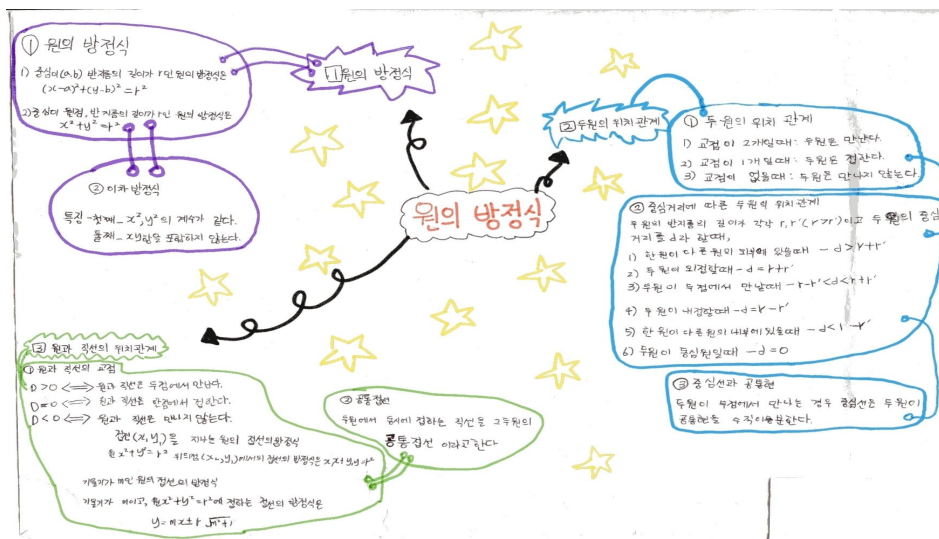 원의 방정식
1 원의 방정식
① 원의 방정식
1) 중심이 (a,b) 반지름의 길이가 r인 원의 방정식은
(x-a)²+(y-b)²=r²
2) 중심이 원점, 반지름의 길이가 r인 원의 방정식은
x²+y²=r²
② 이차방정식
특징 -첫째- x²,y²의 계수가 같다.
둘째- xy항을 포함하지 않는다.
2 두원의 위치관계
① 두 원의 위치 관계
1) 교점이 2개일때: 두원은 만난다.
2) 교점이 1개일때: 두원은 접한다.
3) 교점이 없을때: 두원은 만나지 않는다.
② 중심거리에 따른 두원의 위치관계
두원의 반지름의 길이가 각각 r, r'(r>r')이고 두원의 중심
거리를 d라 할때,
1) 한원이 다른원의 외부에 있을때 - d>r+r'
2) 두원이 외접할때 - d=r+r'
3) 두원이 두점에서 만날때 - r-r'<d<r+r'
4) 두원이 내접할때 - d=r-r'
5) 한원이 다른원의 내부에 있을때 - d<r-r'
6) 두원이 동심원일때 - d=0
③ 중심선과 공통현
두원이 두점에서 만나는 경우 중심선은 두원의
공통현을 수직이등분한다.
3 원과 직선의 위치관계
① 원과 직선의 교점
D>0 ⟺ 원과 직선은 두점에서 만난다.
D=0 ⟺ 원과 직선은 한점에서 접한다.
D<0 ⟺ 원과 직선은 만나지 않는다.
접점(x₁y₁)을 지나는 원의 접선의방정식
원 x²+y²=r² 위의점(x₁,y₁)에서의 접선의 방정식은 x₁x+y₁y=r²
기울기가 m인 원의 접선의 방정식
기울기가 m이고, 원x²+y²=r²에 접하는 접선의 방정식은
y=mx±r√m²+1
② 공통접선
두원에서 동시에 접하는 직선을 그두원의
공통접선 이라고한다